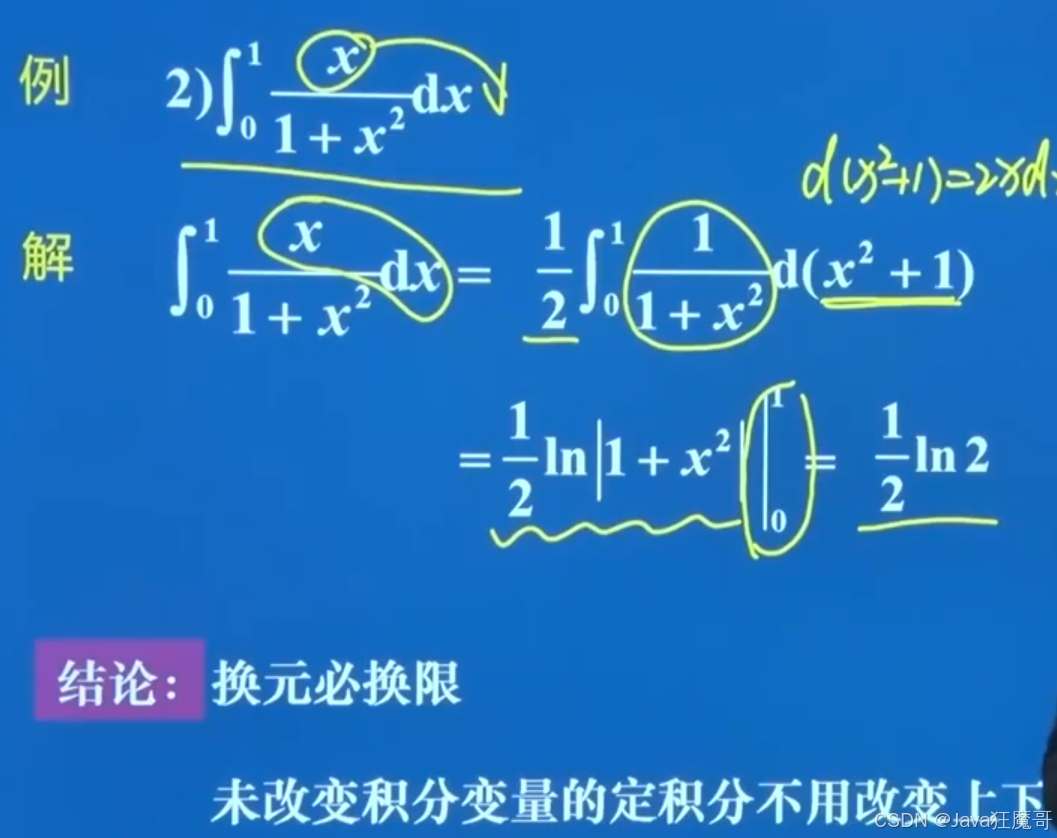 例 2)∫₀¹ x/(1+x²) dx
d(x²+1)=2xd
解 ∫₀¹ x/(1+x²) dx = 1/2 ∫₀¹ 1/(1+x²) d(x²+1)
= 1/2 ln|1+x²| |₀¹ = 1/2 ln 2
结论：换元必换限
未改变积分变量的定积分不用改变上下
CSDN @Java狂魔哥